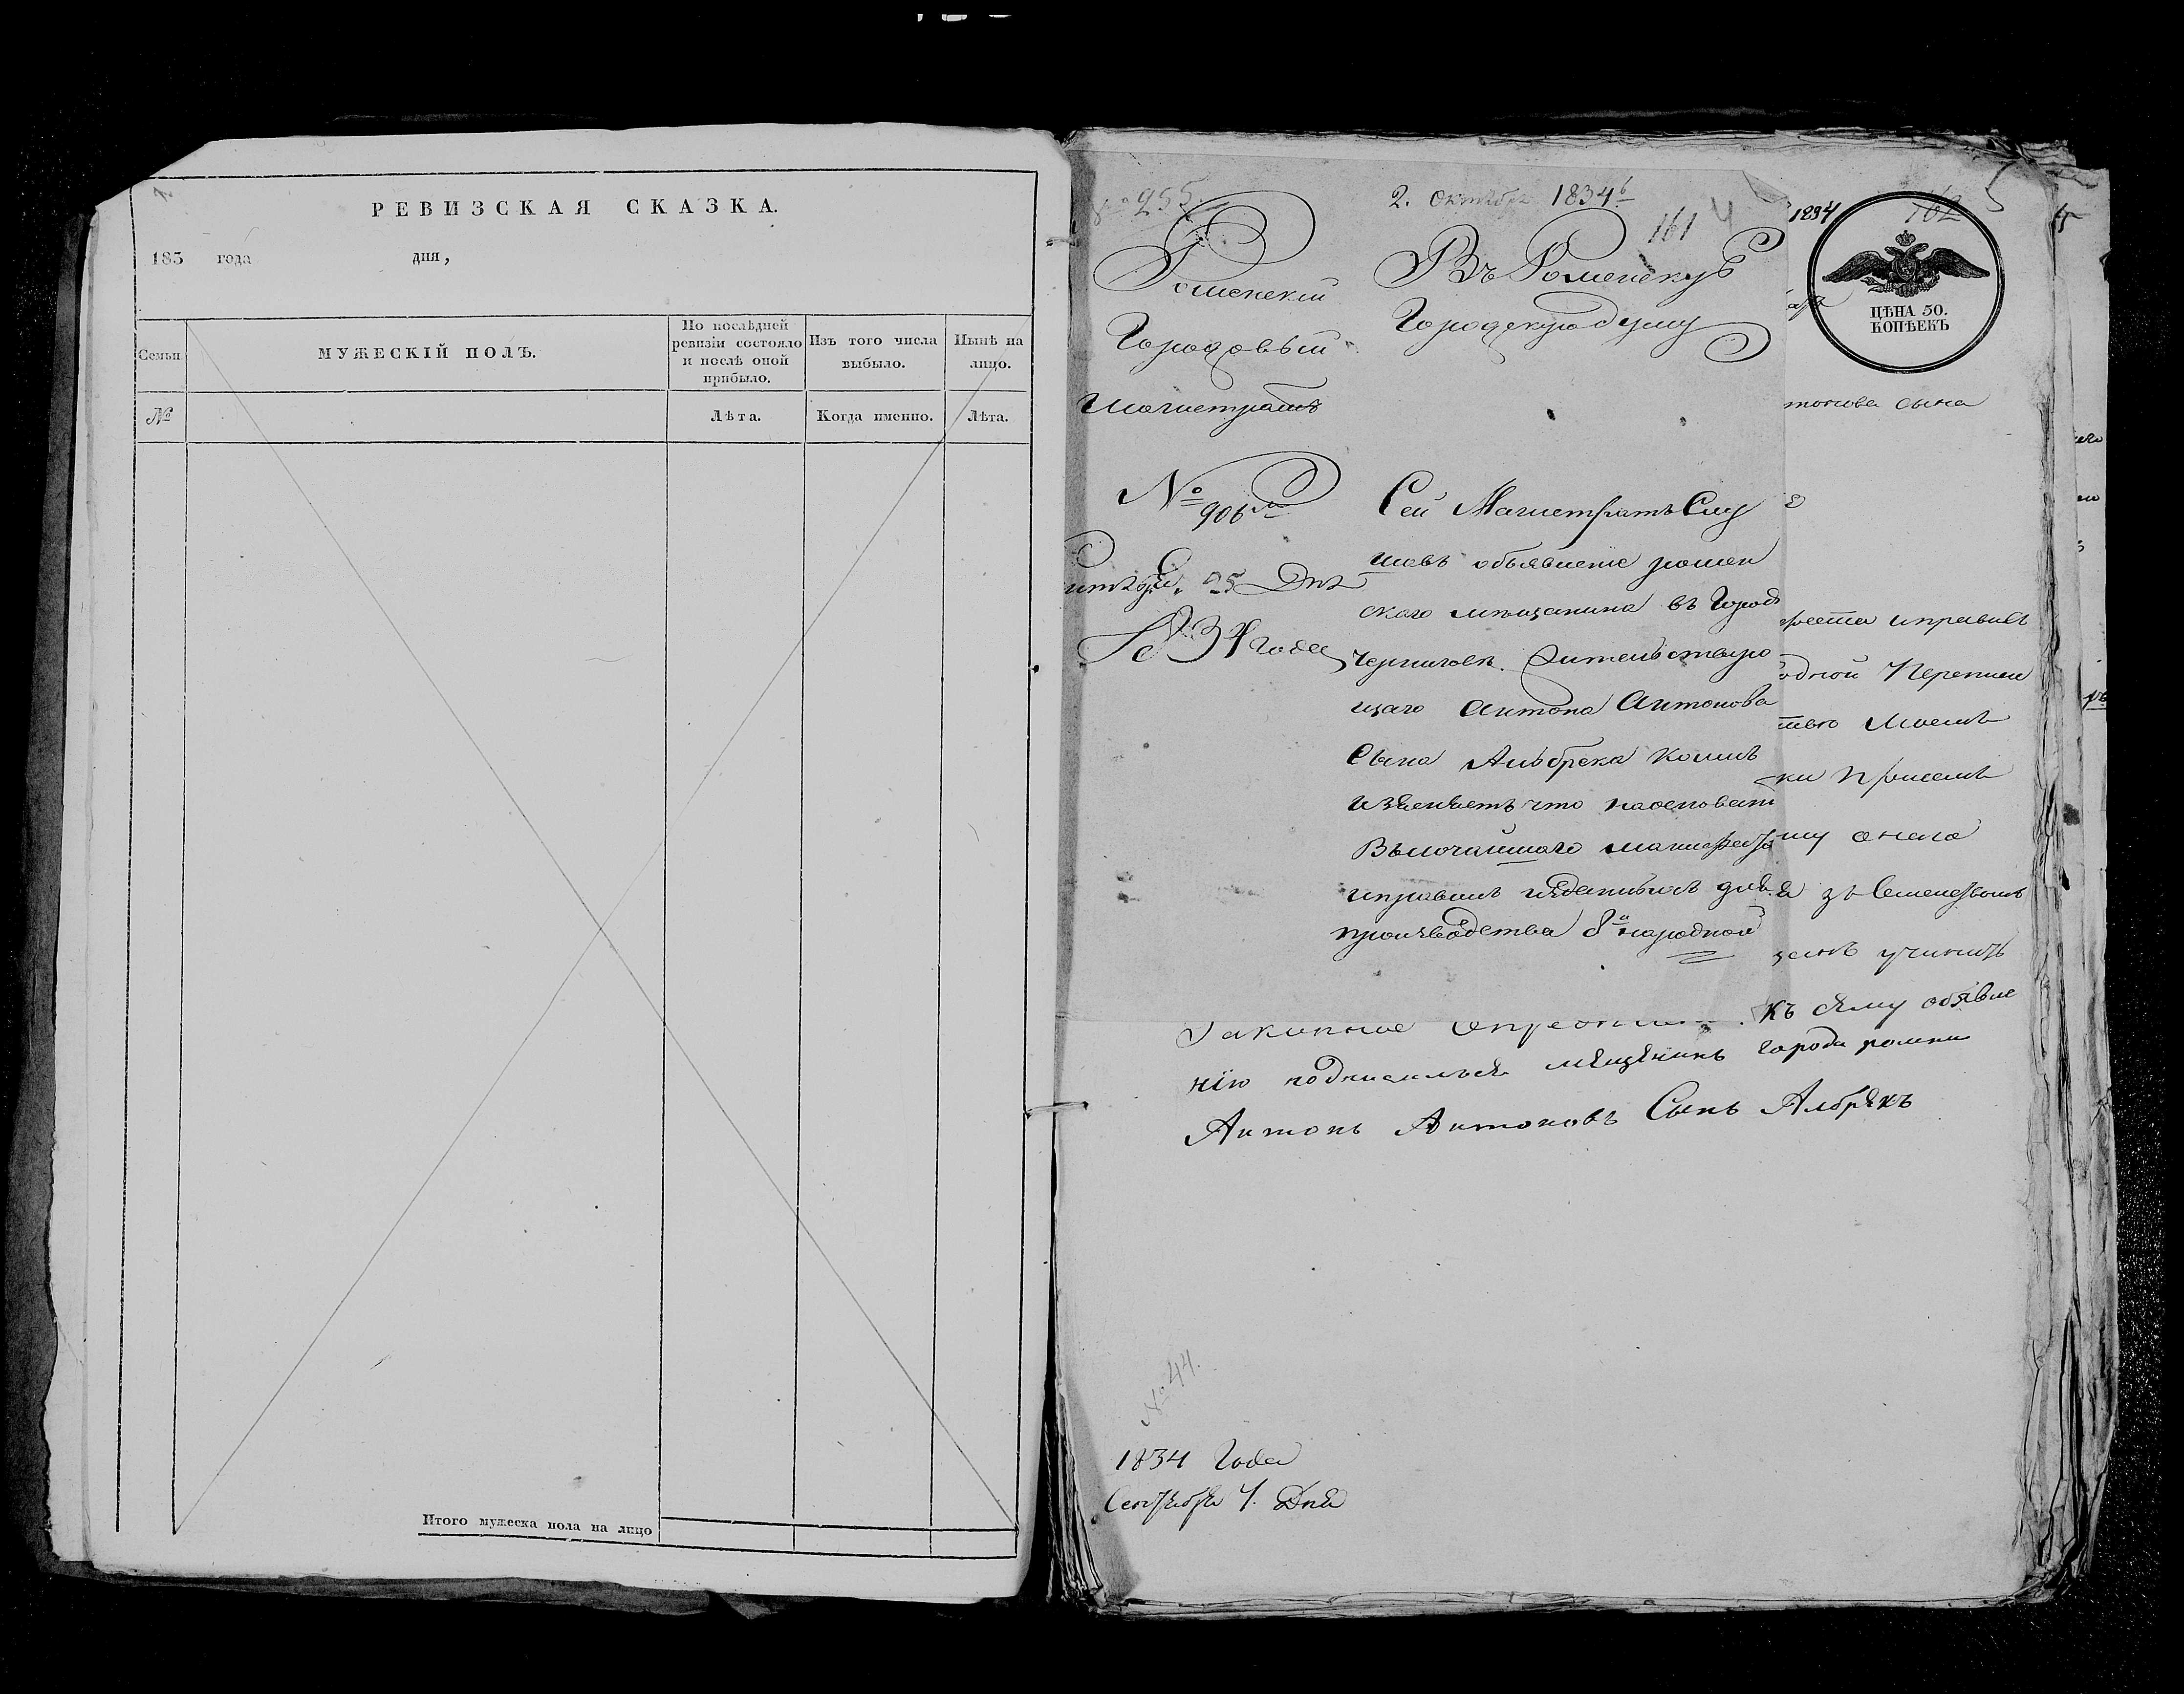 РЕВИЗСКАЯ СКАЗКА.
183 года дня,
Семьи
МУЖЕСКІЙ ПОЛЪ.
По послѣдней ревизіи состояло и послѣ оной прибыло.
Изъ того числа выбыло.
Нынѣ на лицо.
№
Лѣта.
Когда именно.
Лѣта.
Итого мужеска пола на лицо
№ 255.
2. Октября 1834
161 4
Роменскій
Городовый
Магистратъ
№ 906
25 Дня
1834 года
Въ Роменскую
Городскую думу
Сей Магистратъ Слу
шавъ объявленіе ромен
скаго мѣщанина въ Городѣ
Черниговѣ Жительствую
щаго Антона Антонова
Сына Альбрека коимъ
изъясняетъ что на основании
Высочайшаго манифеста
и правилъ изданныхъ для
производства 8й народной
1834
162 5
ЦѢНА 50.
КОПѢЕКЪ
тонова сына
феста и правилъ
одной Переписи
моемъ
му оного
учинить
Законное къ сему объявле
нію подписался мещенинъ города ромна
Антонъ Антоновъ Сынъ Албрекъ
№ 44.
1834 Года
Сентября 4. Дня